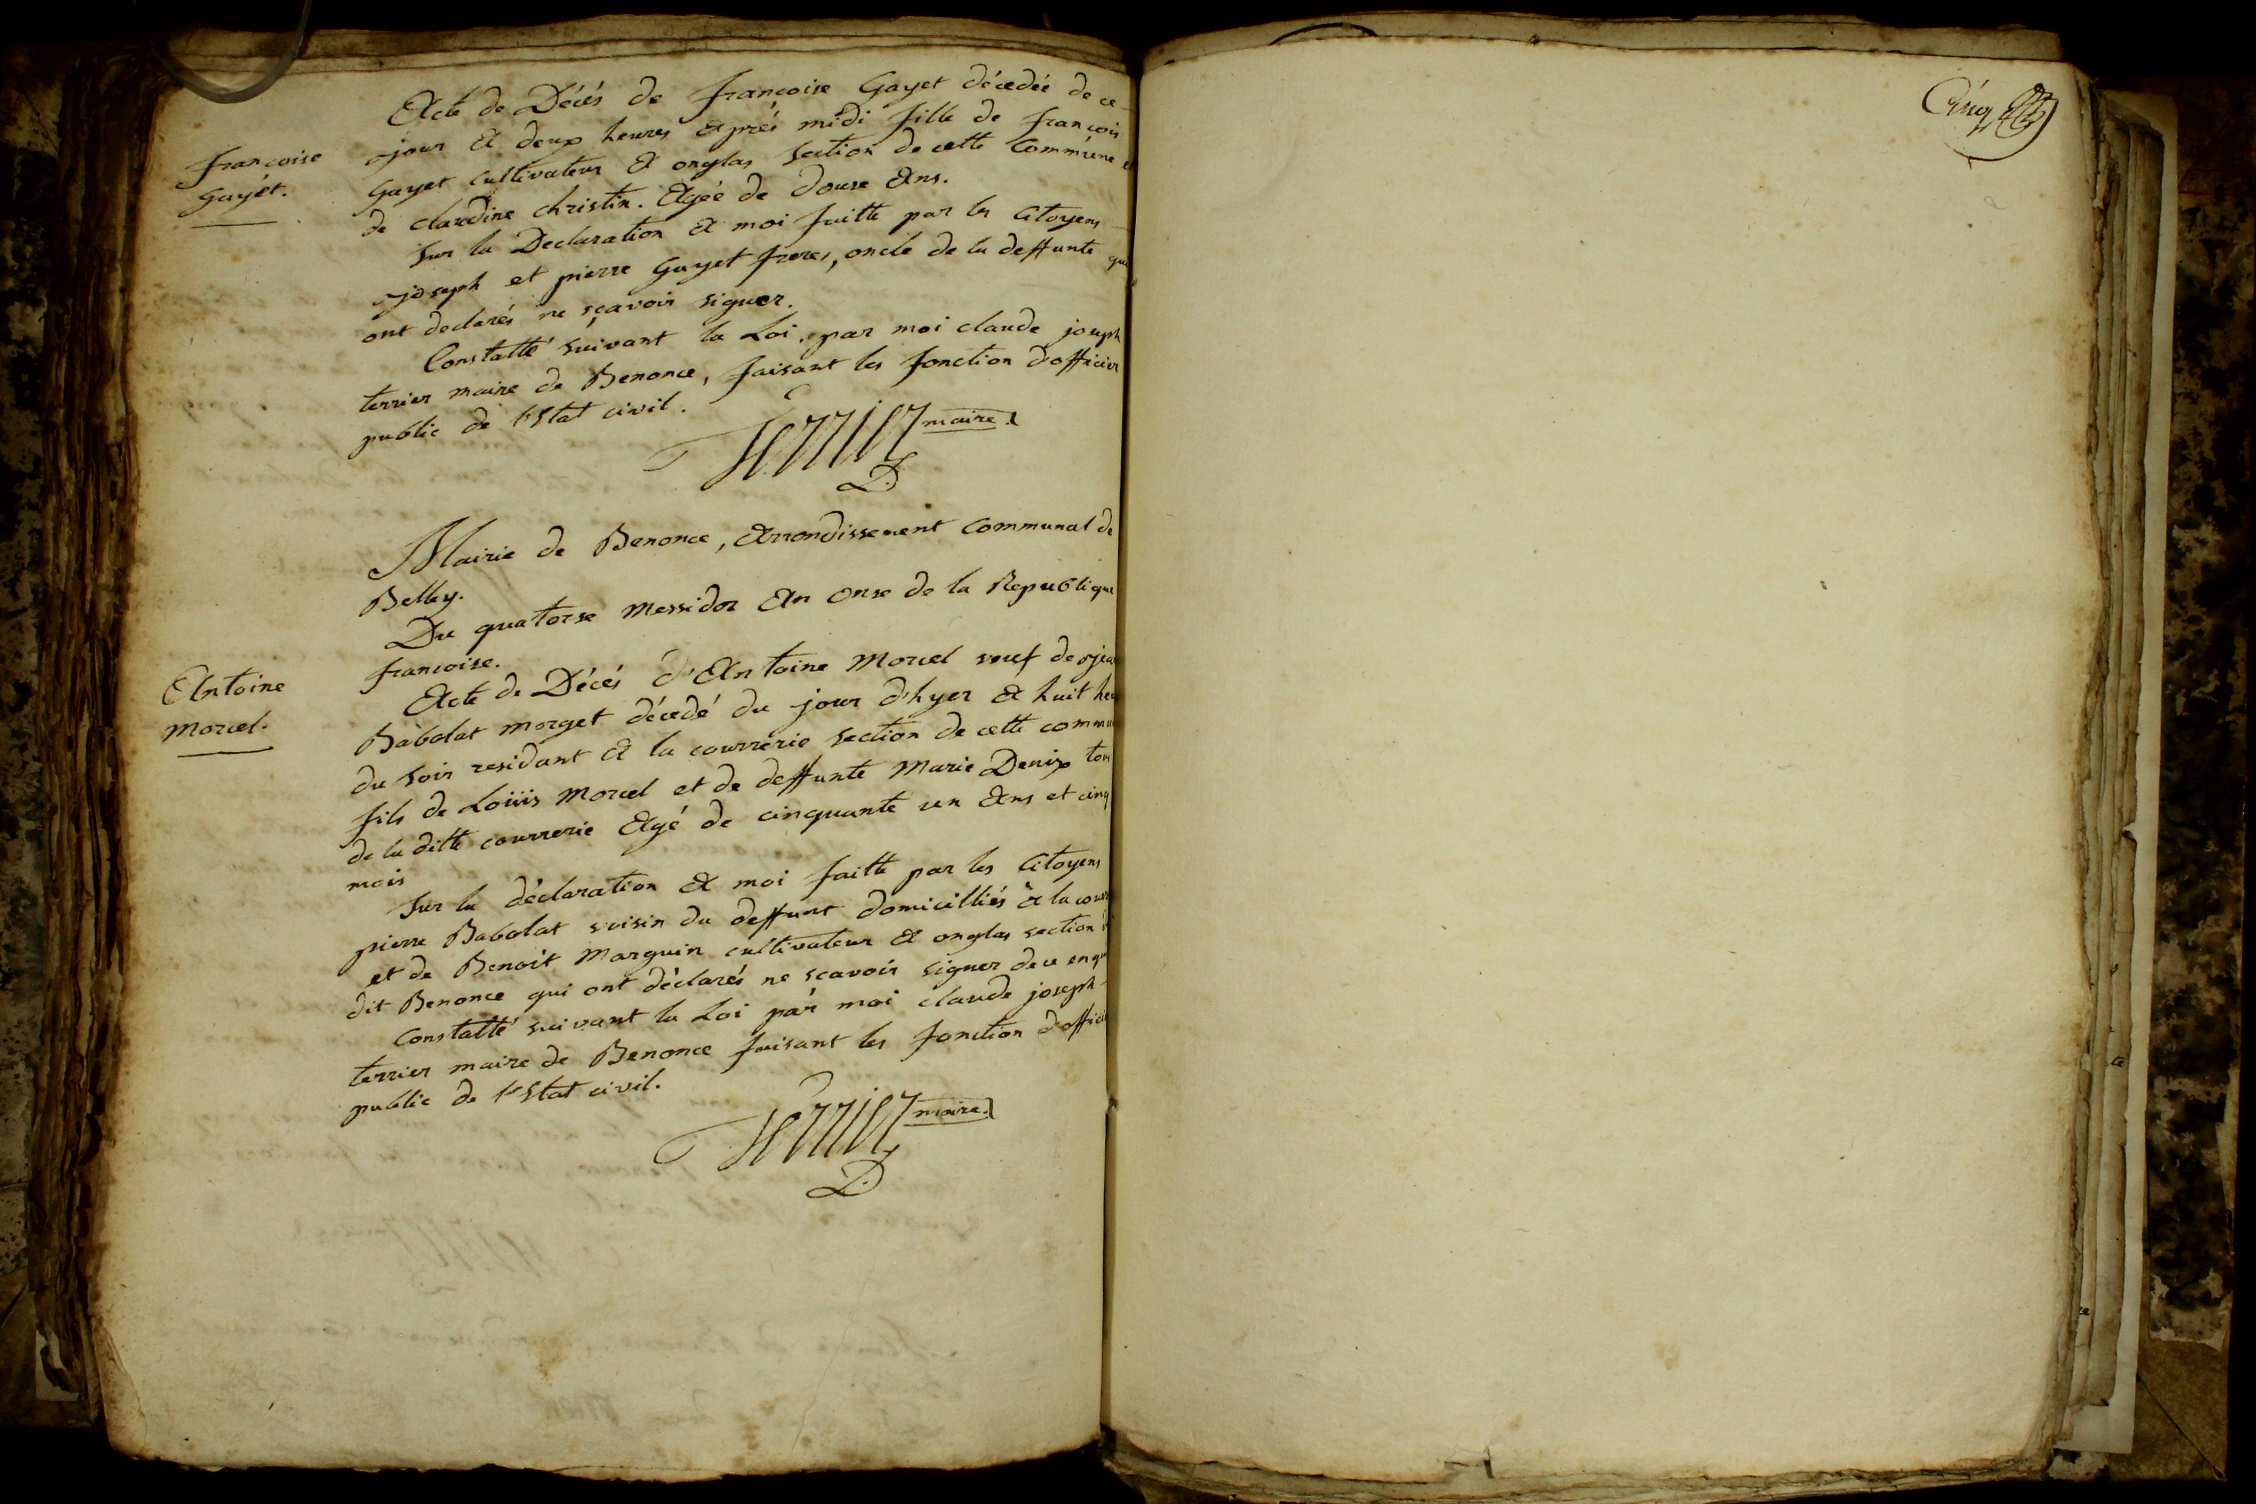 Acte de Décés de françoise Gayet décedée de ce
jour a deux heures après midi fille de françois
Gayet cultivateur a onglas section de cette Commune et
de claudine christin. Agée de douse Ans.
Sur la Declaration a moi faitte par les Citoyens
joseph et pierre Gayet freres, oncle de la deffunte qui
ont declarés ne sçavoir signer.
Constatté suivant la Loi, par moi claude joseph
terrier maire de Benonce, faisant les fonction d'officier
public de l'Etat civil.
Terrier maire
D.
françoise
Gayet.
Mairie de Benonce, Arrondissement Communal de
Belley.
Du quatorse Messidor An Onse de la Republique
francoise.
Antoine
Morcel.
Acte de Décés d'Antoine Morcel veuf de
Babolat morget décedé du jour d'hyer a huit
du soir residant a la courrerie section de cette
fils de Loüis Morcel et de deffunte Marie Denix
de la ditte courrerie Agé de cinquante un Ans et cinq
mois
Sur la déclaration a moi faitte par les Citoyens
pierre Babolat voisin du deffunt domicilliés a la
et de Benoit Marguin cultivateur a onglas section
dit Benonce qui ont déclarés ne scavoir signer de ce
Constatté suivant la Loi par moi claude joseph
terrier maire de Benonce faisant les fonction
public de l'Etat civil.
Terrier maire.
D.
Cinq